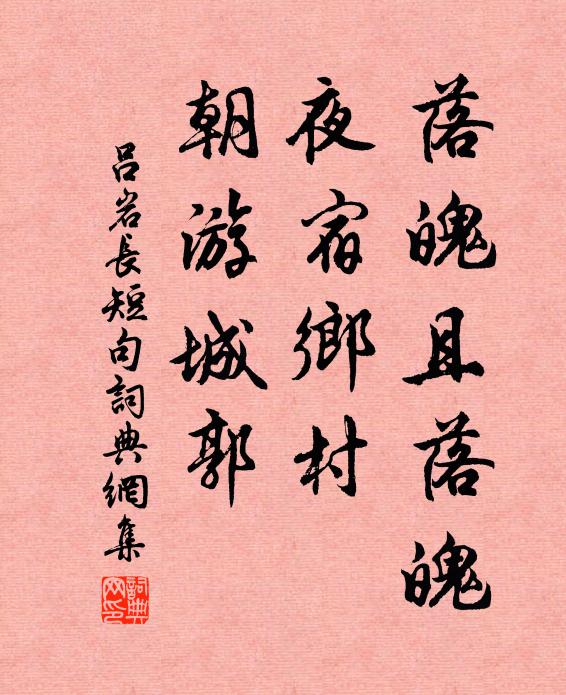 落魄且落魄
夜宿鄉村
朝游城郭
吕岩長短句詞典網集
詞典网印